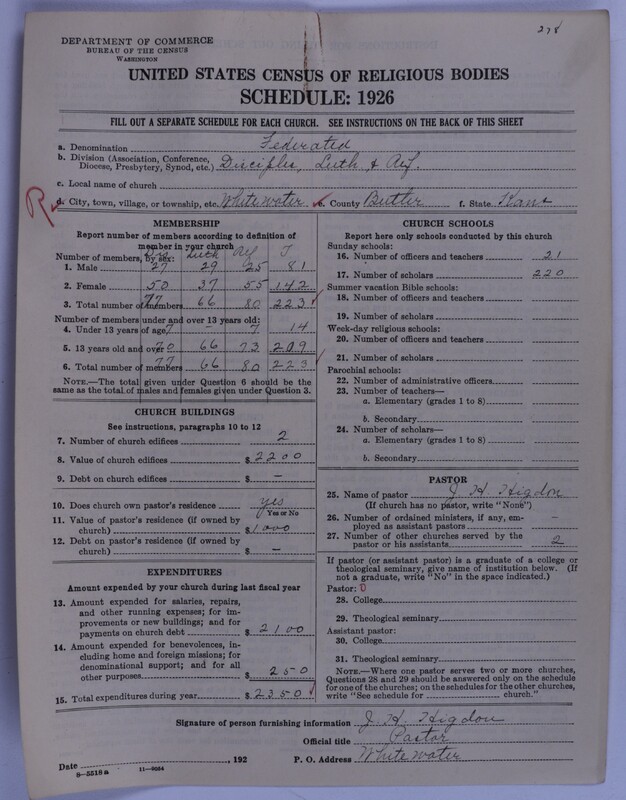 278
DEPARTMENT OF COMMERCE
BUREAU OF THE CENSUS
WASHINGTON
UNITED STATES CENSUS OF RELIGIOUS BODIES
SCHEDULE: 1926
FILL OUT A SEPARATE SCHEDULE FOR EACH CHURCH. SEE INSTRUCTIONS ON THE BACK OF THIS SHEET
a. Denomination Federated
b. Division (Association, Conference, Diocese, Presbytery, Synod, etc.) Disciples, Luth & Ref.
c. Local name of church
R
d. City, town, village, or township, etc. Whitewater e. County Butler f. State Kans
MEMBERSHIP
Report number of members according to definition of
member in your church
Number of members, by sex: Luth Ref T
1. Male 27 29 25 81
2. Female 50 37 55 142
3. Total number of members 77 66 80 223
Number of members under and over 13 years old:
4. Under 13 years of age 7 - 7 14
5. 13 years old and over 70 66 73 209
6. Total number of members 77 66 80 223
NOTE.—The total given under Question 6 should be
same as the total of males and females given under Question 3.
CHURCH BUILDINGS
See instructions, paragraphs 10 to 12
7. Number of church edifices 2
8. Value of church edifices $ 2200
9. Debt on church edifices $ -
10. Does church own pastor's residence yes
Yes or No
11. Value of pastor's residence (if owned by
church) $ 1000
12. Debt on pastor's residence (if owned by
church) $ -
EXPENDITURES
Amount expended by your church during last fiscal year
13. Amount expended for salaries, repairs,
and other running expenses; for im-
provements or new buildings; and for
payments on church debt $ 2100
14. Amount expended for benevolences, in-
cluding home and foreign missions; for
denominational support; and for all
other purposes $ 250
15. Total expenditures during year $ 2350
CHURCH SCHOOLS
Report here only schools conducted by this church
Sunday schools:
16. Number of officers and teachers 21
17. Number of scholars 220
Summer vacation Bible schools:
18. Number of officers and teachers
19. Number of scholars
Week-day religious schools:
20. Number of officers and teachers
21. Number of scholars
Parochial schools:
22. Number of administrative officers
23. Number of teachers—
a. Elementary (grades 1 to 8)
b. Secondary
24. Number of scholars—
a. Elementary (grades 1 to 8)
b. Secondary
PASTOR
25. Name of pastor J. H. Higdon
(If church has no pastor, write "None")
26. Number of ordained ministers, if any, em-
ployed as assistant pastors -
27. Number of other churches served by the
pastor or his assistants 2
If pastor (or assistant pastor) is a graduate of a college or
theological seminary, give name of institution below. (If
not a graduate, write "No" in the space indicated.)
Pastor: 0
28. College
29. Theological seminary
Assistant pastor:
30. College
31. Theological seminary
NOTE.—Where one pastor serves two or more churches,
Questions 28 and 29 should be answered only on the schedule
for one of the churches; on the schedules for the other churches,
write "See schedule for church."
Signature of person furnishing information J. H. Higdon
Official title Pastor
Date , 192 P. O. Address Whitewater
8-5518a 11-9054